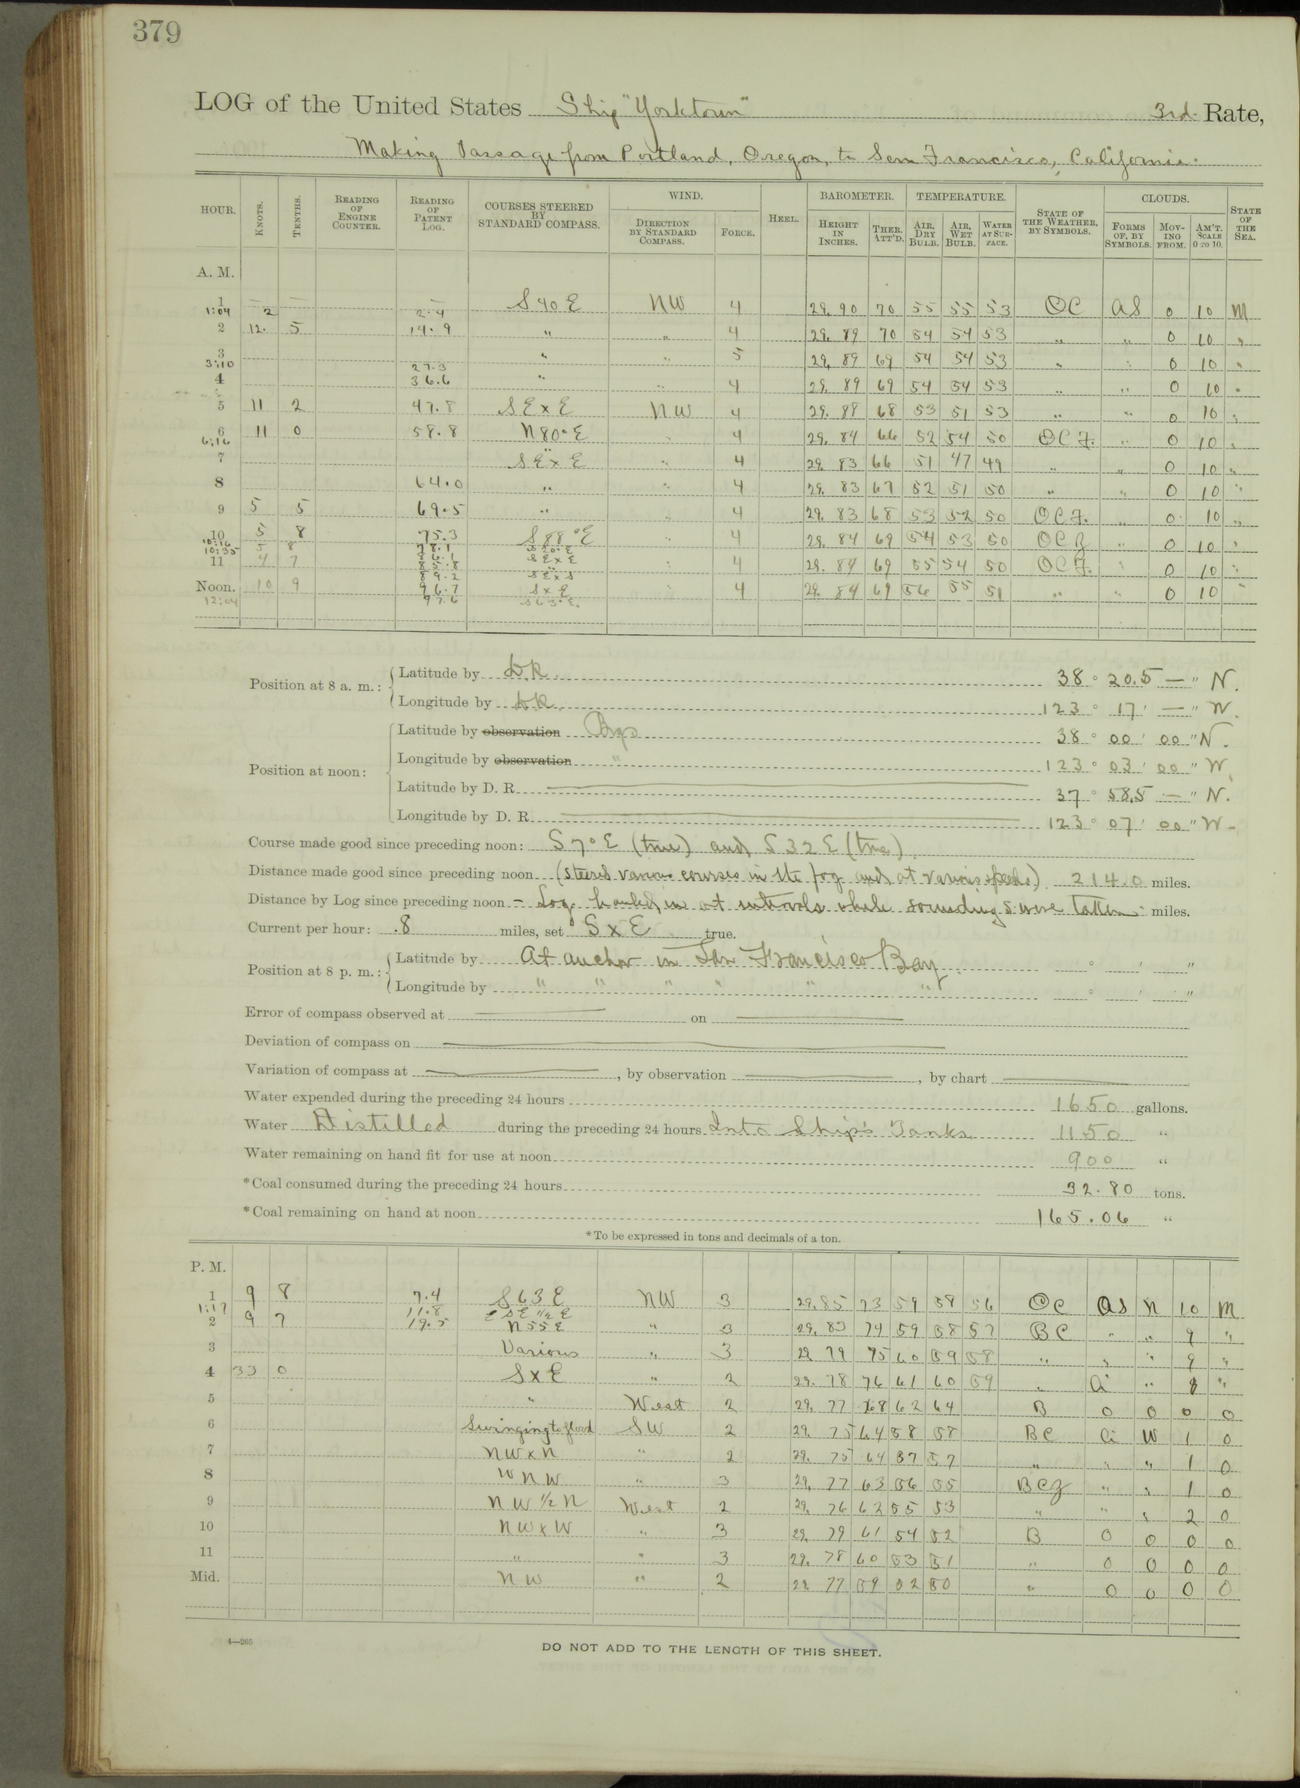 379
LOG of the United States Ship "Yorktown" 3rd Rate,
Making Passage from Portland, Oregon, to San Francisco, California.
HOUR. KNOTS. TENTHS. READING OF ENGINE COUNTER. READING OF PATENT LOG. COURSES STEERED BY STANDARD COMPASS. WIND. DIRECTION BY STANDARD COMPASS. FORCE. HEEL. BAROMETER. HEIGHT IN INCHES. THER. ATT'D. TEMPERATURE. AIR, DRY BULB. AIR, WET BULB. WATER AT SURFACE. STATE OF THE WEATHER, BY SYMBOLS. CLOUDS. FORMS OF, BY SYMBOLS. MOVING FROM. AM'T. SCALE 0 TO 10. STATE OF THE SEA.
A. M.
1 — — — S 40 E NW 4 29.90 70 55 55 53 OC AS 0 10 M
1:04 2 2.4
2 12. 5 14.9 " " 4 29.89 70 54 54 53 " " 0 10 "
3 " " 5 29.89 69 54 54 53 " " 0 10 "
3:10 27.3
4 36.6 " " 4 29.89 69 54 54 53 " " 0 10 "
5 11 2 47.8 SExE NW 4 29.88 68 53 51 53 " " 0 10 "
6 11 0 58.8 N80°E " 4 29.84 66 52 54 50 OCF. " 0 10 "
6:16
7 SExE " 4 29.83 66 51 47 49 " " 0 10 "
8 64.0 " " 4 29.83 67 52 51 50 " " 0 10 "
9 5 5 69.5 " " 4 29.83 68 53 52 50 OCF. " 0 10 "
10 5 8 75.3 S88°E " 4 29.84 69 54 53 50 OCF " 0 10 "
10:16 5 8 78.1
10:35 SExE
11 4 7 85.8 " 4 29.84 69 55 54 50 OCF. " 0 10 "
89.2
Noon. 10 9 96.7 SxE " 4 29.84 69 56 55 51 " " 0 10 "
12:04 97.6 S63°E.
Position at 8 a. m.: Latitude by D.R. 38° 20.5 — " N.
Longitude by D.R. 123° 17' — " W.
Position at noon: Latitude by observation Brgs 38° 00' 00" N.
Longitude by observation " 123° 03' 00" W.
Latitude by D. R. 37° 58.5 — " N.
Longitude by D. R. 123° 07' 00" W.
Course made good since preceding noon: S 7° E (true) and S 32 E (true)
Distance made good since preceding noon (Steered various courses in the fog and at various speeds) 214.0 miles.
Distance by Log since preceding noon – Log hauled in at intervals while soundings were taken. miles.
Current per hour: .8 miles, set SxE true.
Position at 8 p. m.: Latitude by At anchor in San Francisco Bay. ° ' "
Longitude by " " " " " " ° ' "
Error of compass observed at on
Deviation of compass on
Variation of compass at , by observation , by chart
Water expended during the preceding 24 hours 1650 gallons.
Water Distilled during the preceding 24 hours Into Ship's Tanks 1150 "
Water remaining on hand fit for use at noon 900 "
*Coal consumed during the preceding 24 hours 32.80 tons.
*Coal remaining on hand at noon 165.06 "
*To be expressed in tons and decimals of a ton.
P. M.
1 9 8 7.4 S63E NW 3 29.85 73 59 58 56 OC AS N 10 M
1:17 11.8 SE½E
2 9 7 19.5 N55E " 3 29.83 74 59 58 57 BC " " 9 "
3 Various " 3 29.79 75 60 59 58 " " " 9 "
4 33 0 SxE " 2 29.78 76 61 60 59 " Ci " 8 "
5 " West 2 29.77 68 62 64 B 0 0 0 0
6 Swinging to flood SW 2 29.75 64 58 58 BC Ci W 1 0
7 NWxN " 2 29.75 64 57 57 " " " 1 0
8 WNW " 3 29.77 63 56 55 BCZ " " 1 0
9 NW½N West 2 29.76 62 55 53 " " " 2 0
10 NWxW " 3 29.79 61 54 52 B 0 0 0 0
11 " " 3 29.78 60 53 51 " 0 0 0 0
Mid. NW " 2 29.77 59 52 50 " 0 0 0 0
4—265
DO NOT ADD TO THE LENGTH OF THIS SHEET.